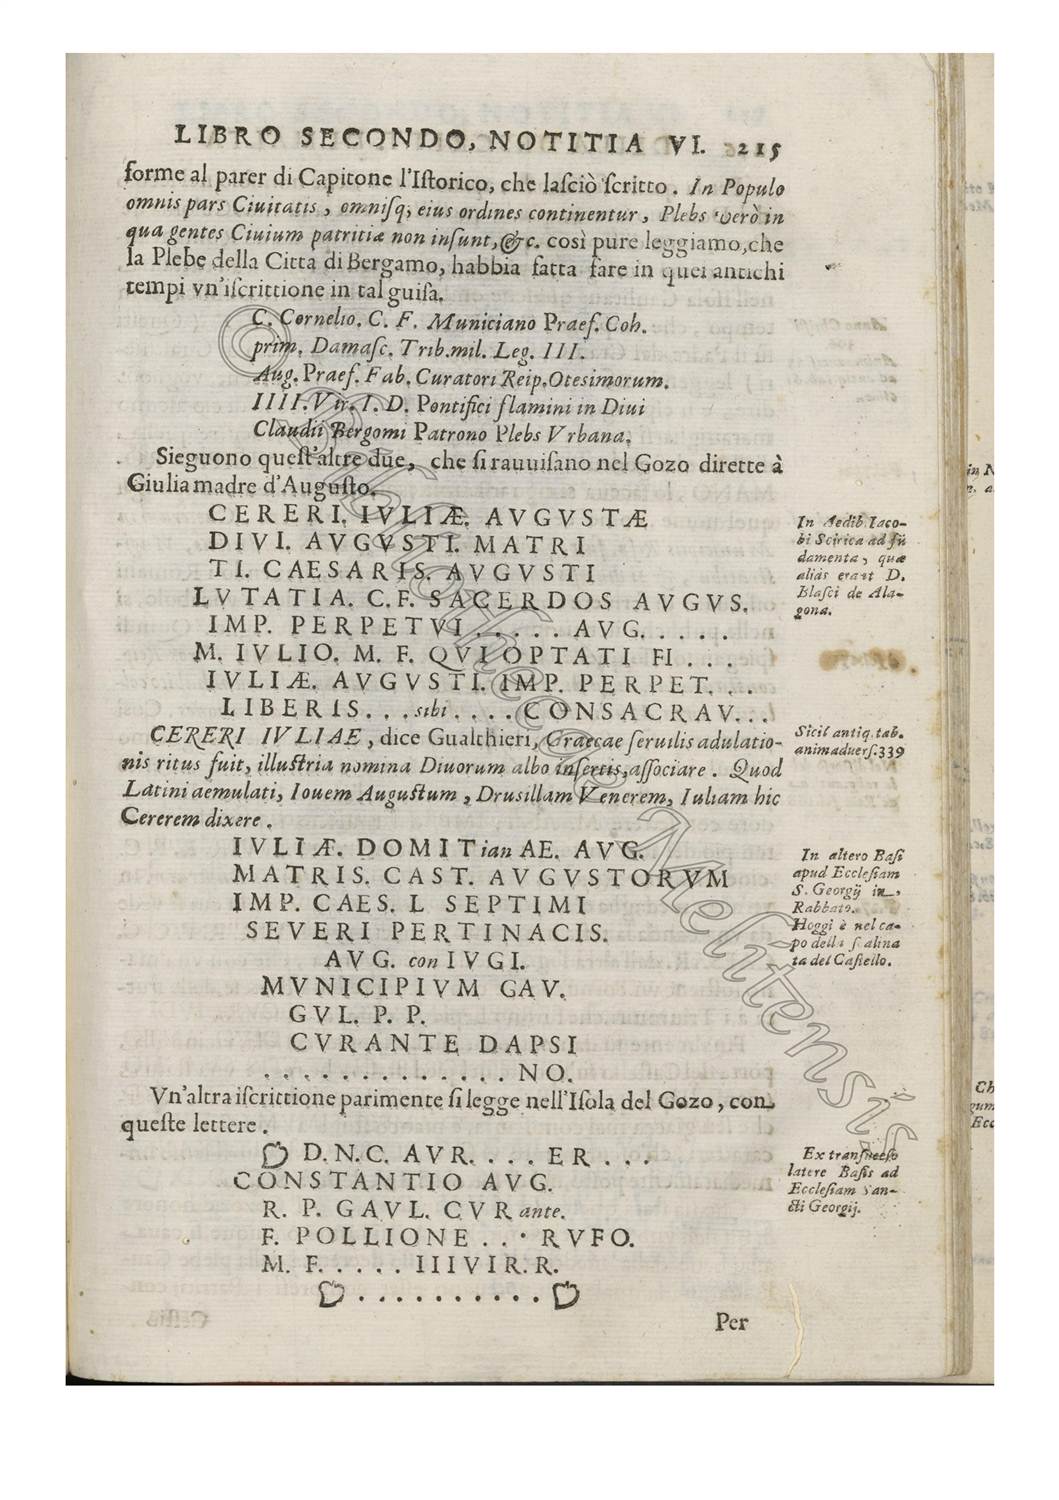 LIBRO SECONDO, NOTITIA VI. 215
forme al parer di Capitone l'Iſtorico, che laſciò ſcritto. In Populo
omnis pars Ciuitatis, omniſq; eius ordines continentur, Plebs verò in
qua gentes Ciuium patritiæ non inſunt, &c. così pure leggiamo, che
la Plebe della Città di Bergamo, habbia fatta fare in quei antichi
tempi vn'iſcrittione in tal guiſa.
C. Cornelio. C. F. Municiano Praef. Coh.
prim. Damaſc. Trib. mil. Leg. III.
Aug. Praef. Fab. Curatori Reip. Otesimorum.
IIII. Vir. I. D. Pontifici flamini in Diui
Claudii Bergomi Patrono Plebs Vrbana.
Sieguono queſt'altre due, che ſi rauuiſano nel Gozo dirette à
Giulia madre d'Auguſto.
CERERI. IVLIÆ. AVGVSTÆ
DIVI. AVGVSTI. MATRI
TI. CAESARIS. AVGVSTI
LVTATIA. C. F. SACERDOS AVGVS.
IMP. PERPETVI . . . . . AVG. . . . .
M. IVLIO. M. F. QVI OPTATI FI . . .
IVLIÆ. AVGVSTI. IMP. PERPET. . .
LIBERIS . . . sibi . . . . CONSACRAV. . .
CERERI IVLIAE, dice Gualthieri, Graecae ſeruilis adulatio-
nis ritus fuit, illuſtria nomina Diuorum albo inſertis, aſſociare. Quod
Latini aemulati, Iouem Auguſtum, Druſillam Venerem, Iuliam hic
Cererem dixere.
IVLIÆ. DOMITian AE. AVG.
MATRIS. CAST. AVGVSTORVM
IMP. CAES. L SEPTIMI
SEVERI PERTINACIS.
AVG. con IVGI.
MVNICIPIVM GAV.
GVL. P. P.
CVRANTE DAPSI
. . . . . . . . . . . . . NO.
Vn'altra iſcrittione parimente ſi legge nell'Iſola del Gozo, con
queſte lettere.
D. N. C. AVR. . . . ER . . .
CONSTANTIO AVG.
R. P. GAVL. CVR ante.
F. POLLIONE . . . RVFO.
M. F. . . . . IIIVIR. R.
. . . . . . . . . . .
Per
In Aedib. Iaco-
bi Scirica ad fũ
damenta, quæ
aliàs erant D.
Blaſci de Ala-
gona.
Sicil antiq. tab.
animaduerſ. 339
In altero Baſi
apud Eccleſiam
S. Georgij in
Rabbato.
Hoggi è nel ca-
po della ſalina
ta del Caſtello.
Ex tranſuerſo
latere Baſis ad
Eccleſiam San-
cti Georgij.
© Bibliotheca Melitensis